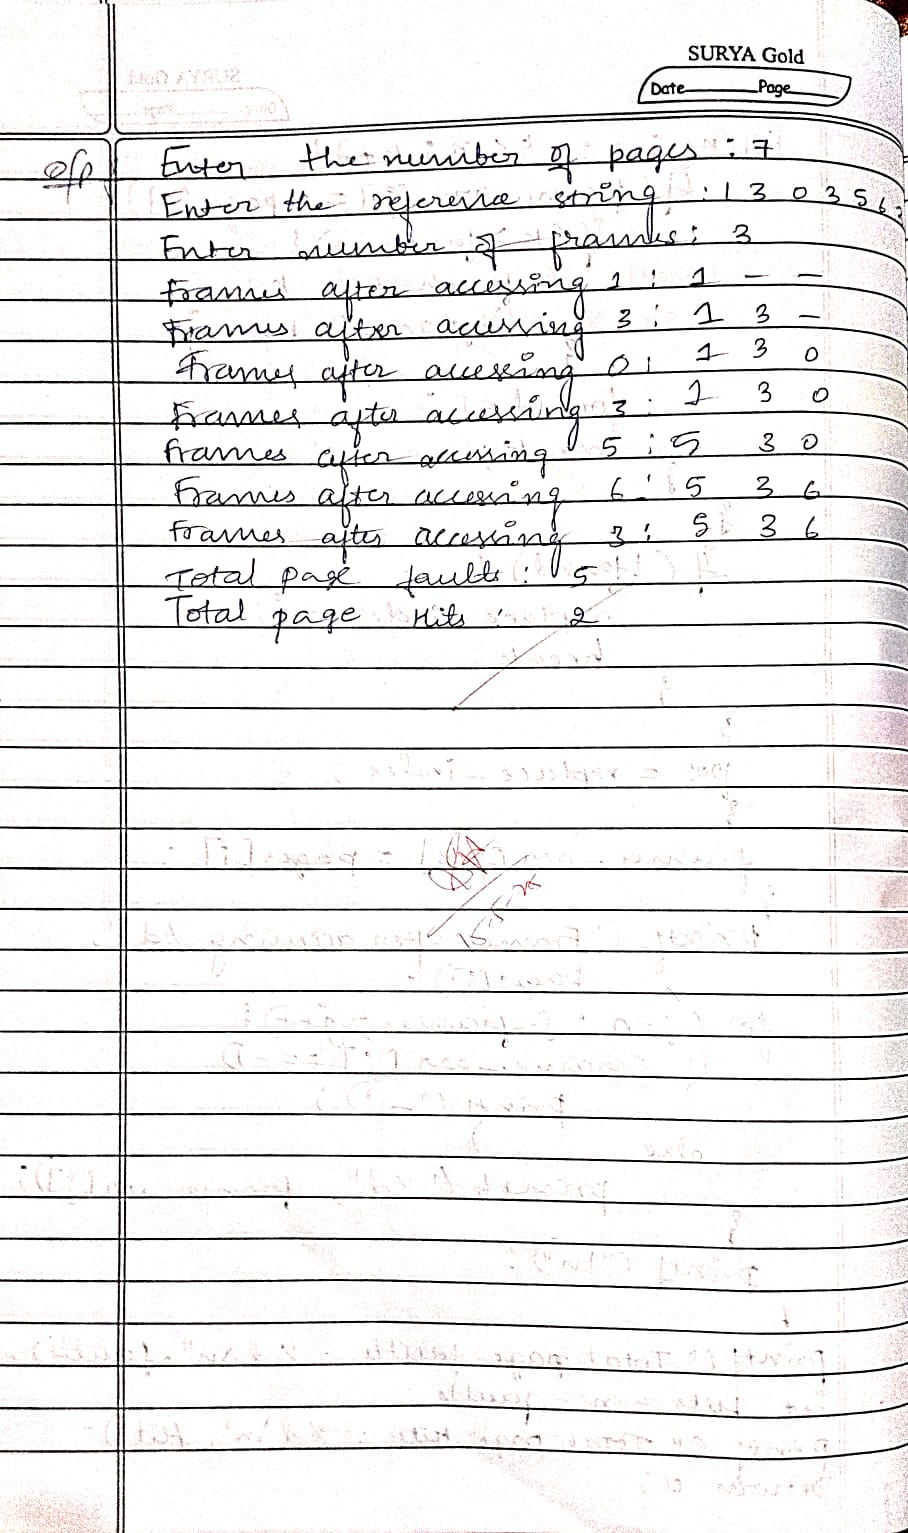 SURYA Gold
Date Page
o/p Enter the number of pages : 7
Enter the reference string : 1 3 0 3 5 6 3
Enter number of frames : 3
frames after accessing 1 : 1 – –
Frames after accessing 3 : 1 3 –
Frames after accessing 0 : 1 3 0
Frames after accessing 3 : 1 3 0
frames after accessing 5 : 5 3 0
Frames after accessing 6 : 5 3 6
frames after accessing 3 : 5 3 6
Total page faults : 5
Total page Hits : 2
15-5-25